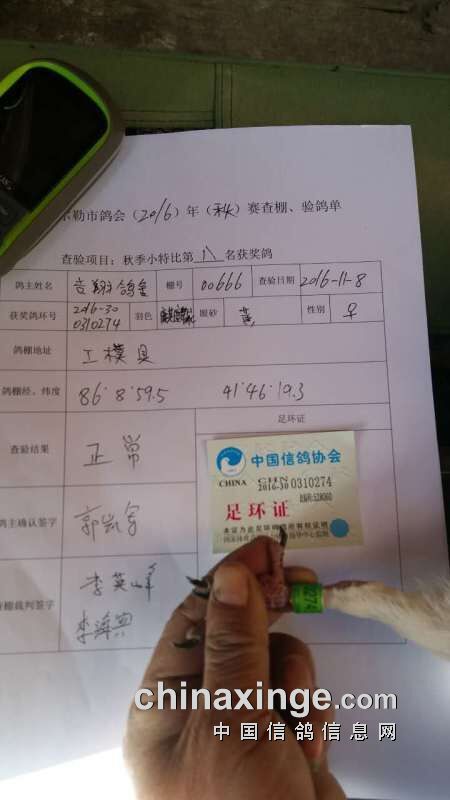 尔勒市鸽会(2016)年(秋)赛查棚、验鸽单
查验项目:秋季小特比第 八 名获奖鸽
鸽主姓名 棚号 00666 查验日期 2016-11-8
获奖鸽环号 2016-30 0310274 羽色 眼砂 黄 性别 ♀
鸽棚地址 工模具
鸽棚经、纬度 86°8′59.5 41°46′19.3
足环证
查验结果 正常
鸽主确认签字
查棚裁判签字 李英峰
中国信鸽协会
CHINA CHN
2016-30 0310274
足环证
0274
chinaxinge.com
中国信鸽信息网